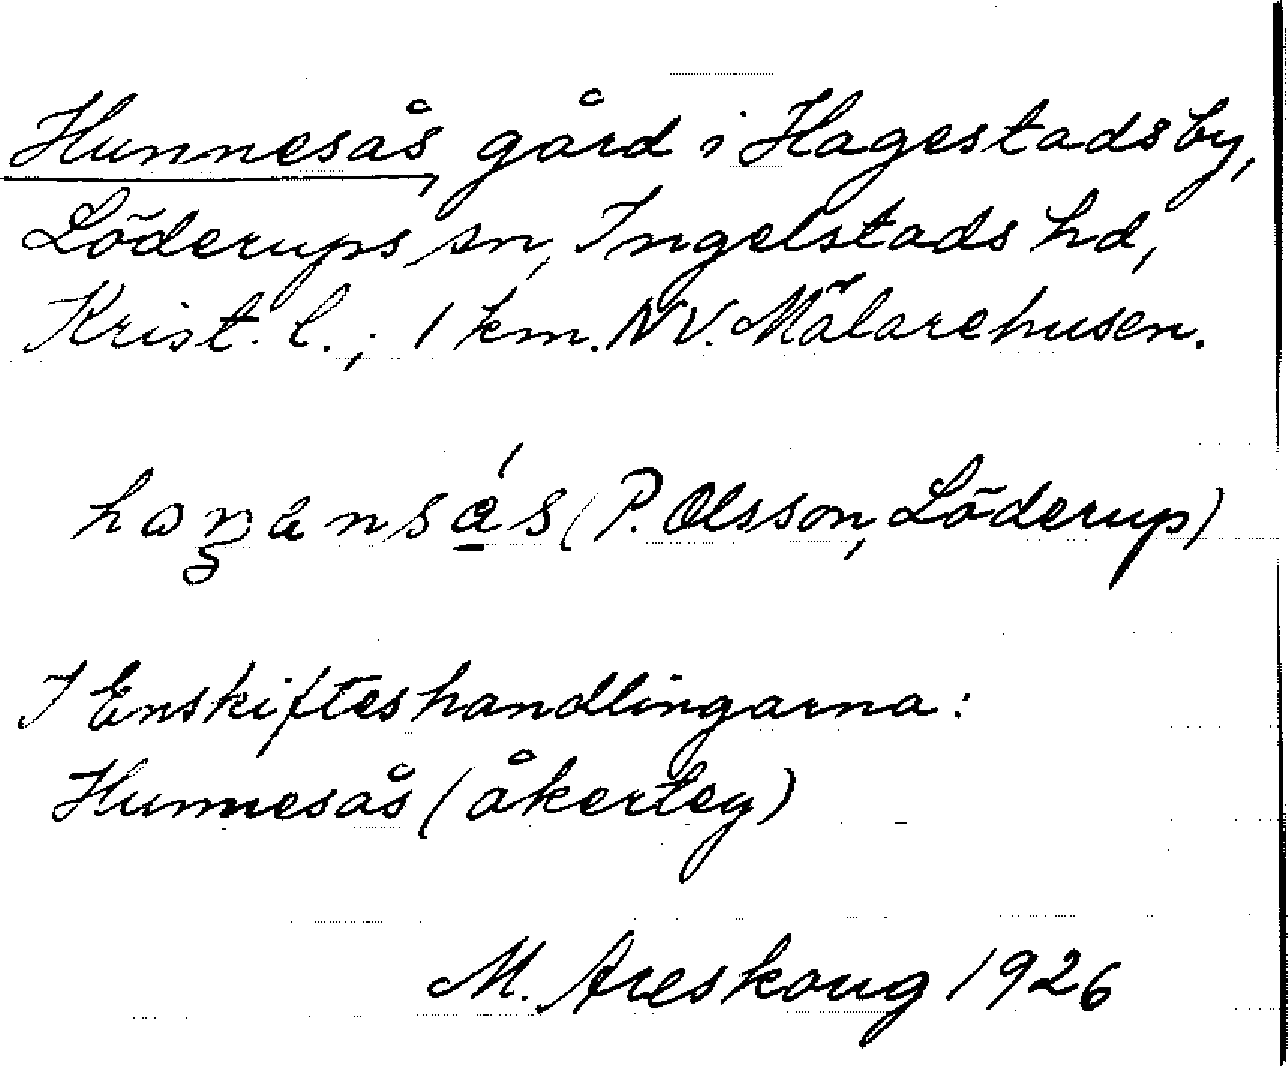 Hunnesås, gård i Hagestads by,
Löderups sn, Ingelstads hd,
Krist. l.; 1 km. NV. Mälarehusen.
(P. Olsson, Löderup)
I Enskifteshandlingarna:
Hunnesås (åkerteg)
M. Areskoug 1926